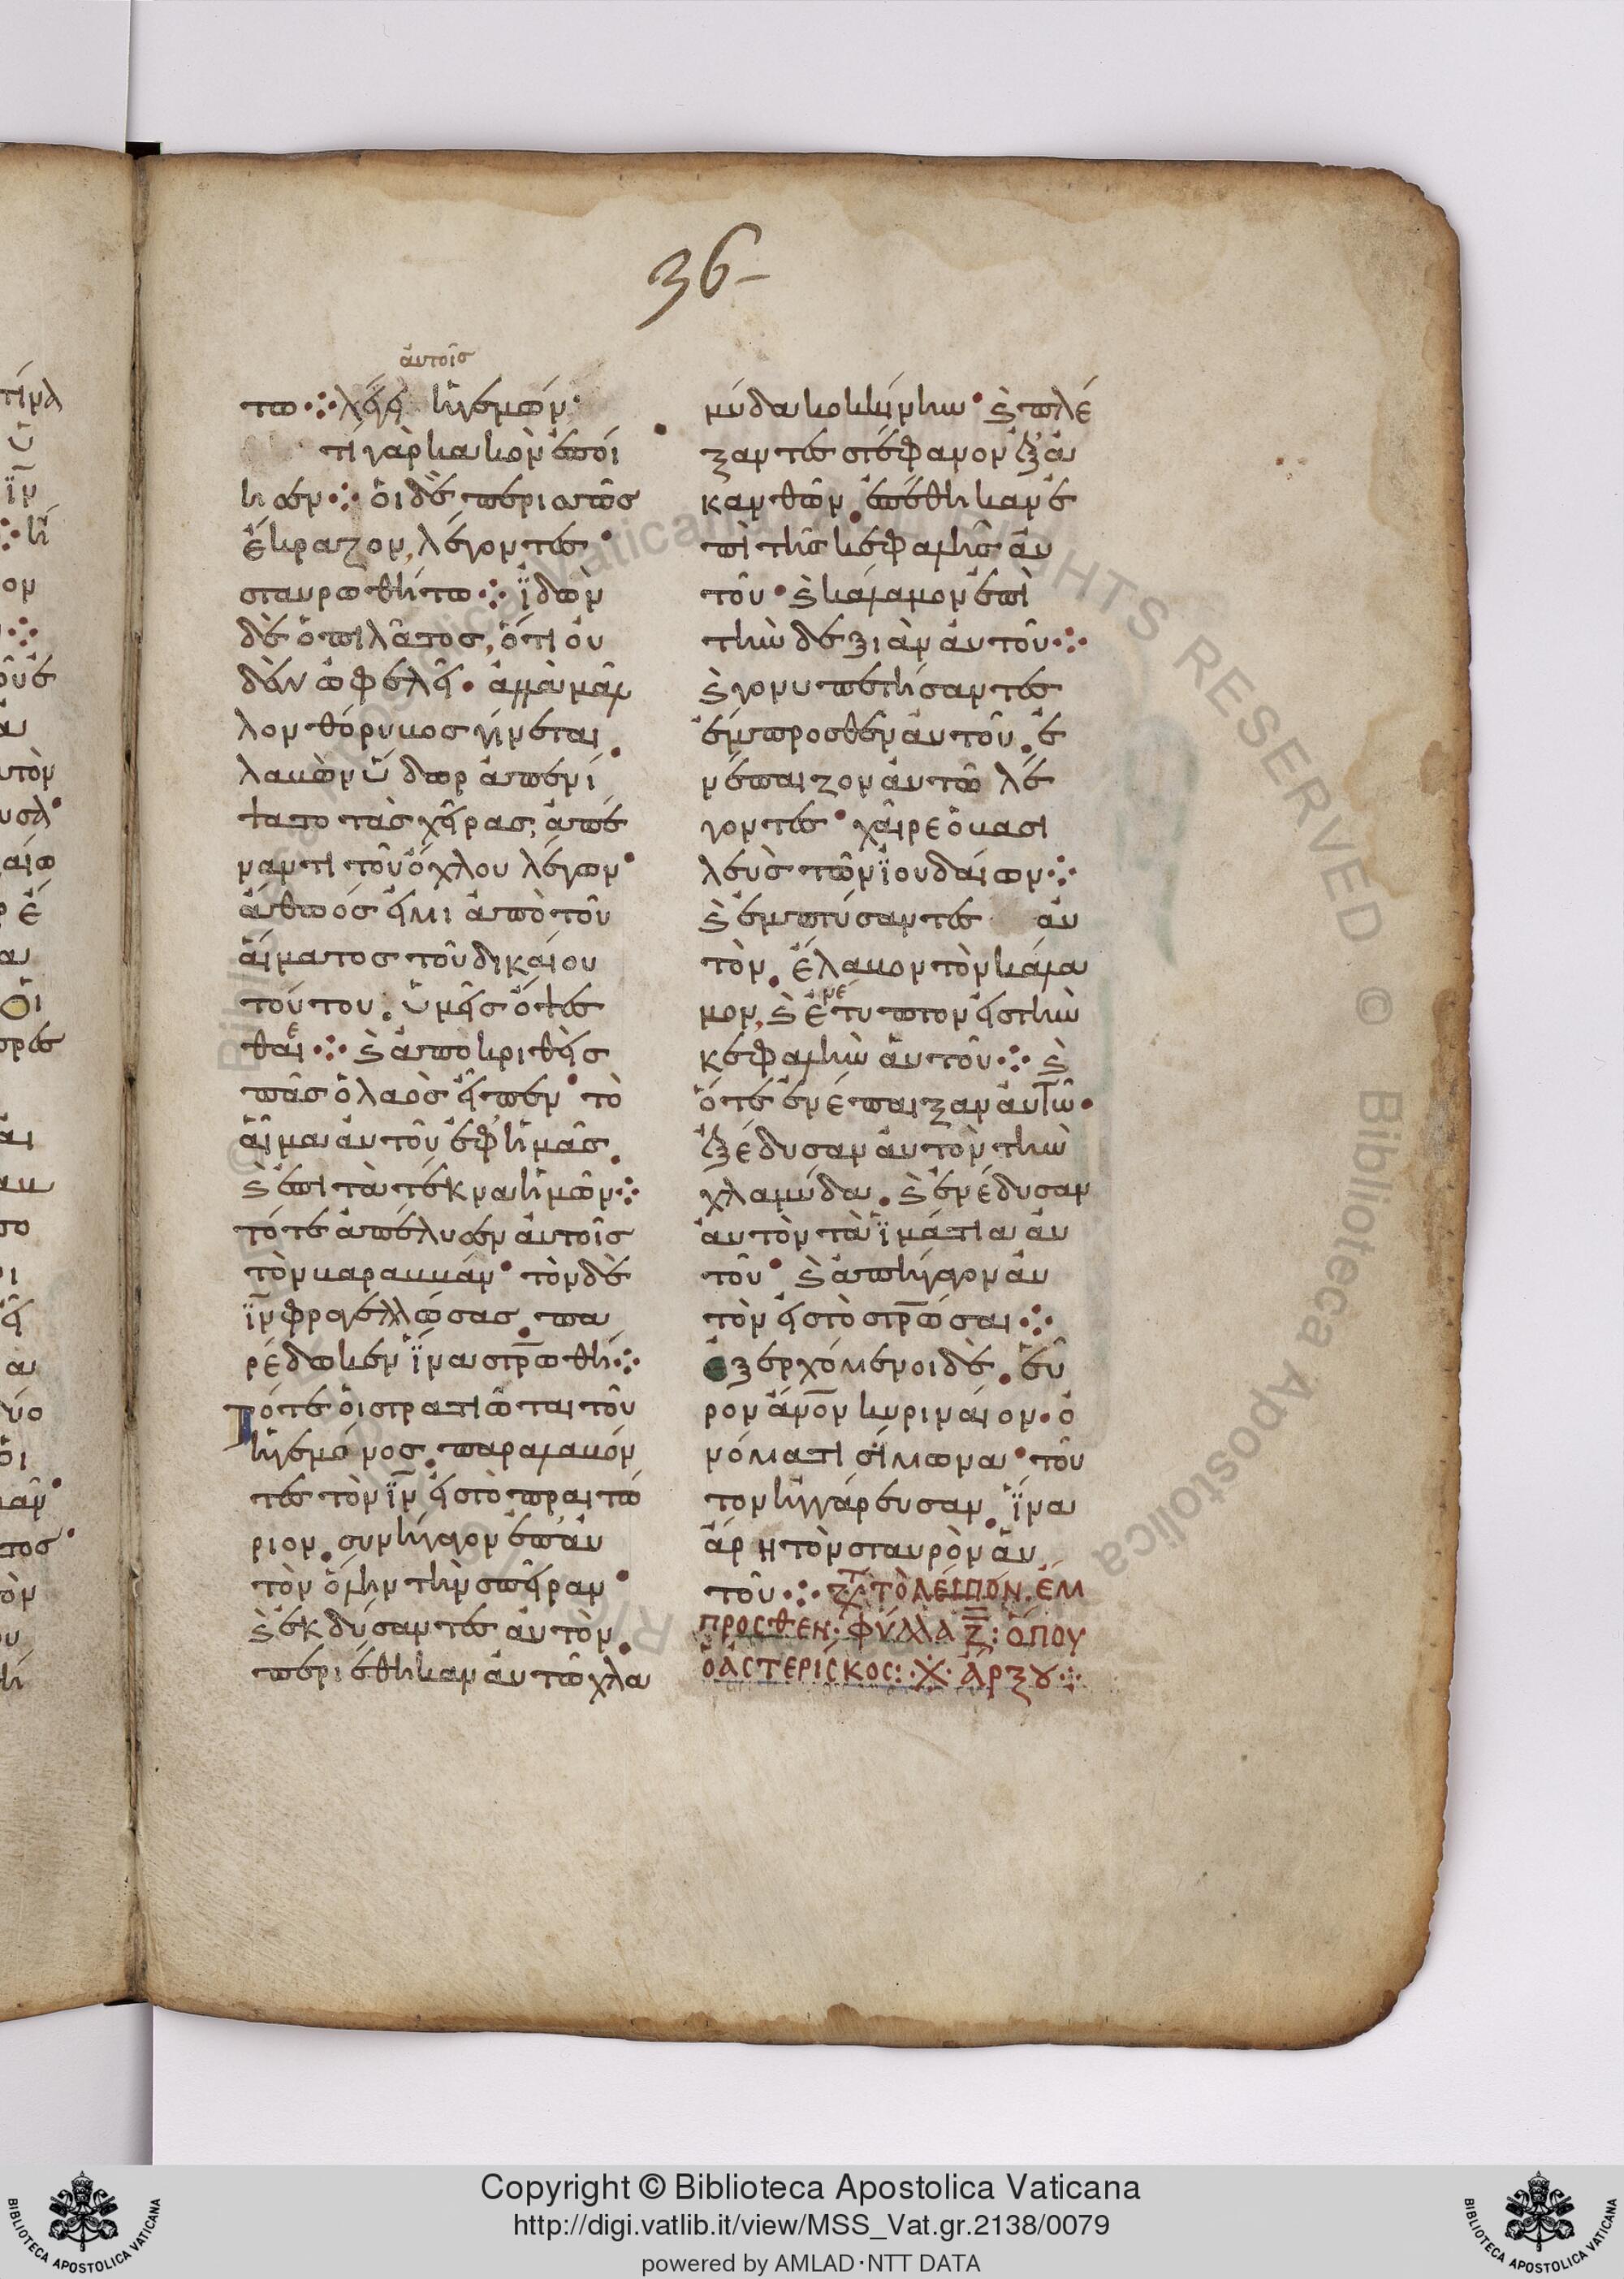 36-
αὐτοῖσ
τω ⁘ λέγει ἡγεμών·
τί γὰρ κακὸν ἐποί
ησεν ⁘ ὁι δὲ περισσῶσ
ἔκραζον, λέγοντεσ·
σταυρωθήτω ⁘ ἰ̈δὼν
δὲ ὁ πιλᾶτοσ, ὅτι οὐ
δὲν ὠφελεῖ. ἀλλὰ μᾶλ
λον θόρυβοσ γίνεται.
λαβὼν ὕδωρ ἀπενί
ψατο τὰσ χεῖρασ, ἀπέ
ναντι τοῦ ὄχλου λέγων·
ἀθῶόσ εἰμι ἀπὸ τοῦ
αἵματοσ τοῦ δικαίου
τούτου. ὑμεῖσ ὄψεσ
θαι ⁘ ϗ ἀποκριθεὶσ
ε
πᾶσ ὁ λαὸσ εἶπεν· τὸ
αἷμα αὐτοῦ ἐφ' ἡμᾶσ.
ϗ ἐπὶ τὰ τέκνα ἡμῶν ⁘
τότε ἀπέλυσεν αὐτοῖσ
τὸν βαραββάν· τὸν δὲ
ι̅ν̅ φραγελλώσασ. πα
ρέδωκεν ἵνα στρ̅ωθῆ ⁘
Τότε ὁι στρατιῶται τοῦ
ἡγεμόνοσ. παραλαβόν
τεσ τὸν ι̅ν̅ εἰσ τὸ πραιτώ
ριον. συνήγαγον ἐπ' αὐ
τὸν ὅλην τὴν σπεῖραν·
ϗ ἐκδύσαντεσ αὐτὸν.
περιέθηκαν αὐτῶ χλα
μύδα κοκκίνην· ϗ πλέ
ξαντεσ στέφανον ἐξ ἀ
κανθῶν. ἐπέθηκαν ἐ
πὶ τῆσ κεφαλῆσ αὐ
τοῦ· ϗ κάλαμον ἐπὶ
τὴν δεξιὰν αὐτοῦ ⁘
ϗ γονυπετήσαντεσ
ἔμπροσθεν αὐτοῦ. ἐ
νέπαιζον αὐτῶ λέ
γοντεσ· χαῖρε ὁ βασι
λεὺσ τῶν ἰ̈ουδαίων ⁘
ϗ ἐμπτύσαντεσ αὐ
τὸν. ἔλαβον τὸν κάλα
μον, ϗ ἔτυπτον εἰσ τὴν
κεφαλὴν αὐτοῦ ⁘ ϗ
ὅτε ἐνέπαιξαν αὐτῶ.
ἐξέδυσαν αὐτὸν τὴν
χλαμύδα. ϗ ἐνέδυσαν
αὐτὸν τὰ ἱμάτια αὐ
τοῦ· ϗ ἀπήγαγον αὐ
τὸν εἰσ τὸ στρ̅ῶσαι ⁘
ἐξερχόμενοι δὲ. εὗ
ρον ἄν̅ο̅ν κυριναῖον. ὀ
νόματι σίμωνα· τοῦ
τον ἠγγάρευσαν. ἵνα
ἄρη τὸν σταυρὸν αὐ
τοῦ ⁘ ΤῸ ΛΕΙΠΌΝ. ἜΜ
ΠΡΟΣΘΕΝ· ΦΎΛΛΑ Ζ̅: ὍΠΟΥ
Ὁ ἈΣΤΕΡΊΣΚΟΣ: ※ ἈΡΞΟΥ ⁘
Copyright © Biblioteca Apostolica Vaticana
http://digi.vatlib.it/view/MSS_Vat.gr.2138/0079
powered by AMLAD·NTT DATA
BIBLIOTECA APOSTOLICA VATICANA
BIBLIOTECA APOSTOLICA VATICANA